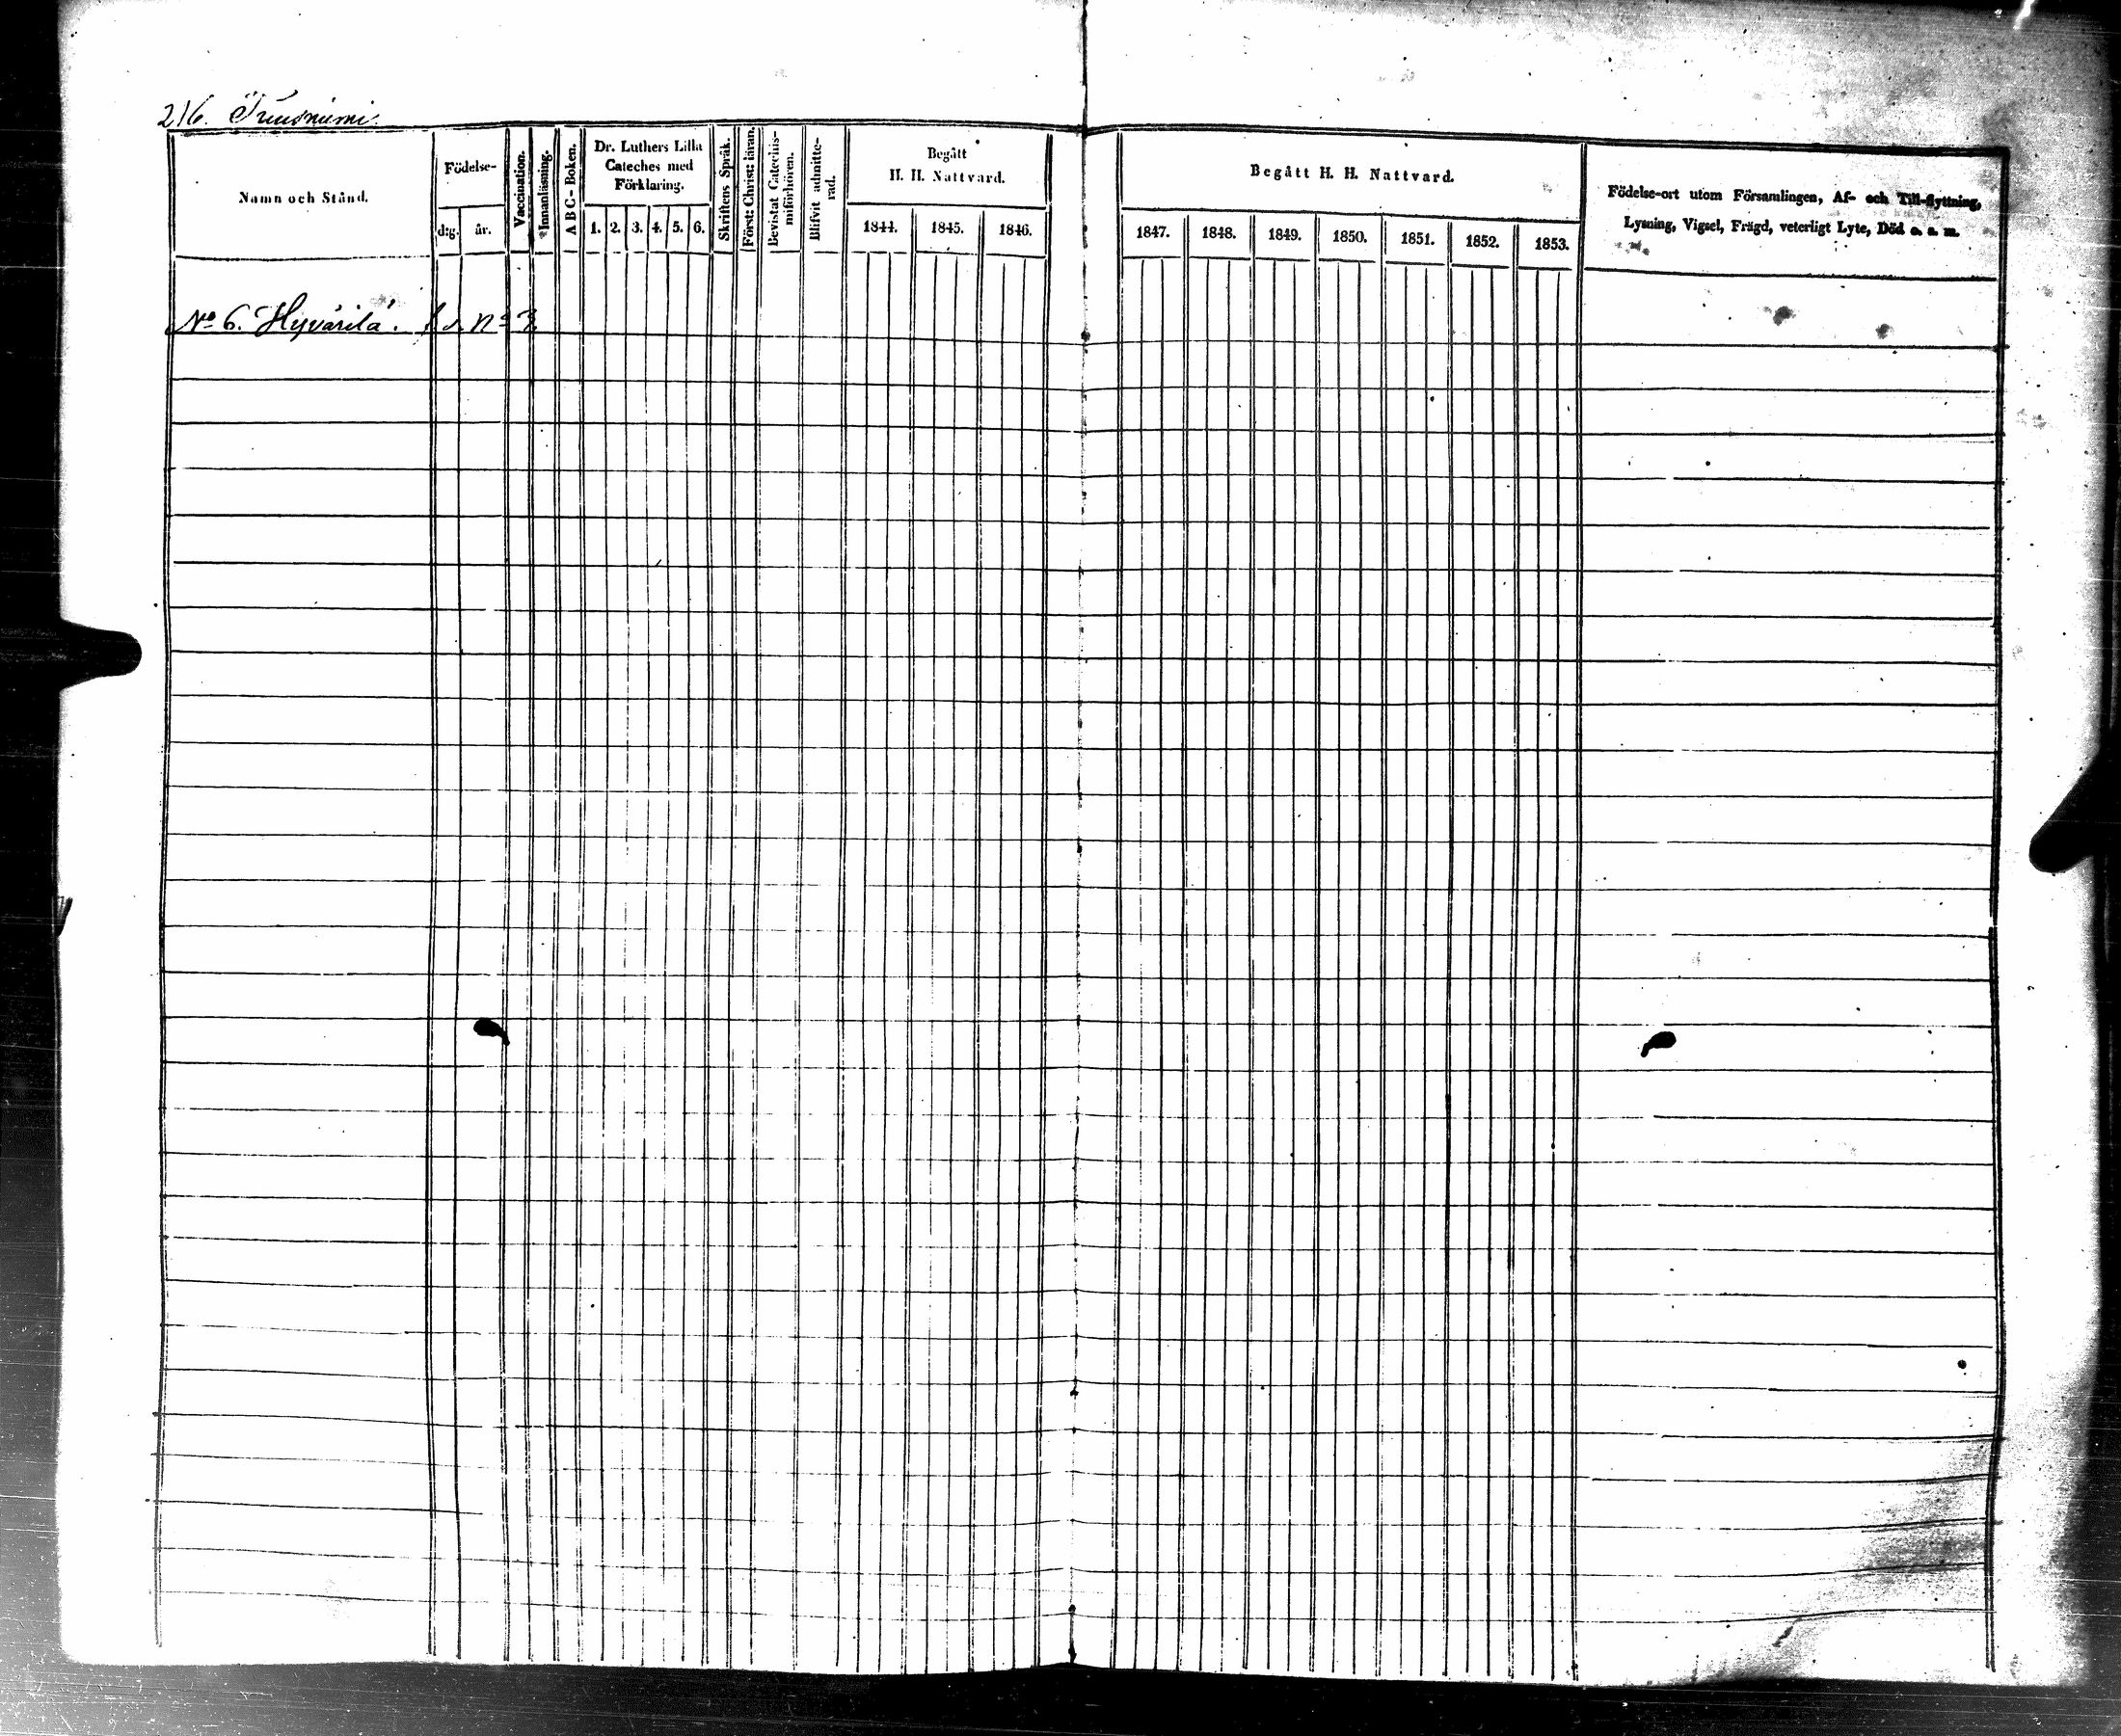 216. Truusniemi.
Namn och Stånd.
Födelse-
d:g. år.
Vaccination.
Innanläsning.
A B C - Boken.
Dr. Luthers Lilla
Cateches med
Förklaring.
1. 2. 3. 4. 5. 6.
Skriftens Språk.
Först: Christ: läran.
Bevistat Catechis-
miförhören.
Blifvit admitte-
rad.
Begått
H. H. Nattvard.
1844. 1845. 1846.
Begått H. H. Nattvard.
1847. 1848. 1849. 1850. 1851. 1852. 1853.
Födelse-ort utom Församlingen, Af- och Till-flyttning,
Lysning, Vigsel, Frägd, veterligt Lyte, Död o. s. m.
No 6. Hyvärilä.